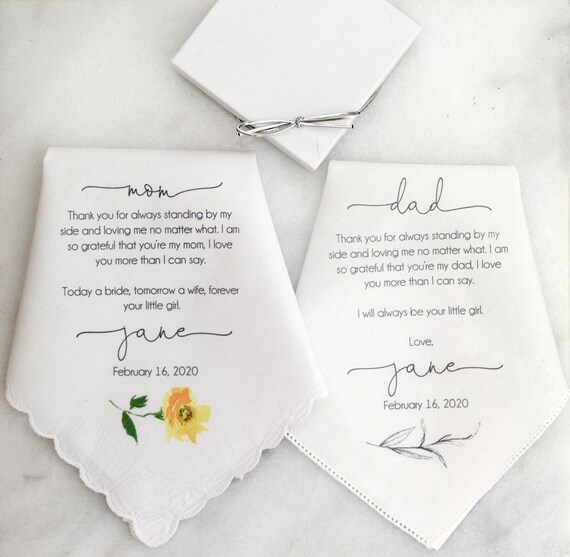 mom
Thank you for always standing by my
side and loving me no matter what. I am
so grateful that you're my mom, I love
you more than I can say.
Today a bride, tomorrow a wife, forever
your little girl.
jane
February 16, 2020
dad
Thank you for always standing by my
side and loving me no matter what. I am
so grateful that you're my dad, I love
you more than I can say.
I will always be your little girl.
Love,
jane
February 16, 2020